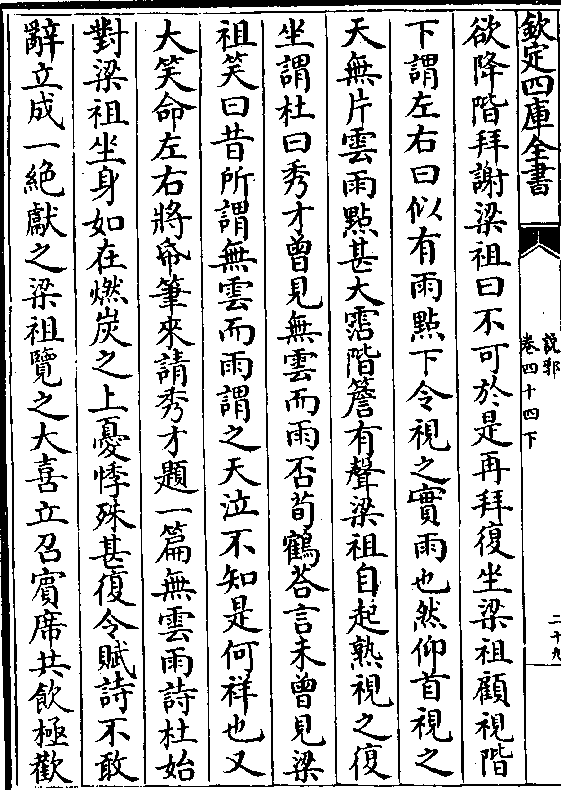 欽定四庫全書
說郛
卷四十四下
二十九
欲降階拜謝梁祖曰不可於是再拜復坐梁祖顧視階
下謂左右曰似有雨點下令視之實雨也然仰首視之
天無片雲雨點甚大霑階簷有聲梁祖自起熟視之復
坐謂杜曰秀才曾見無雲而雨否荀鶴荅言未曾見梁
祖笑曰昔所謂無雲而雨謂之天泣不知是何祥也又
大笑命左右將帋筆來請秀才題一篇無雲雨詩杜始
對梁祖坐身如在燃炭之上憂悸殊甚復令賦詩不敢
辭立成一絶獻之梁祖覽之大喜立召賔席共飲極歡